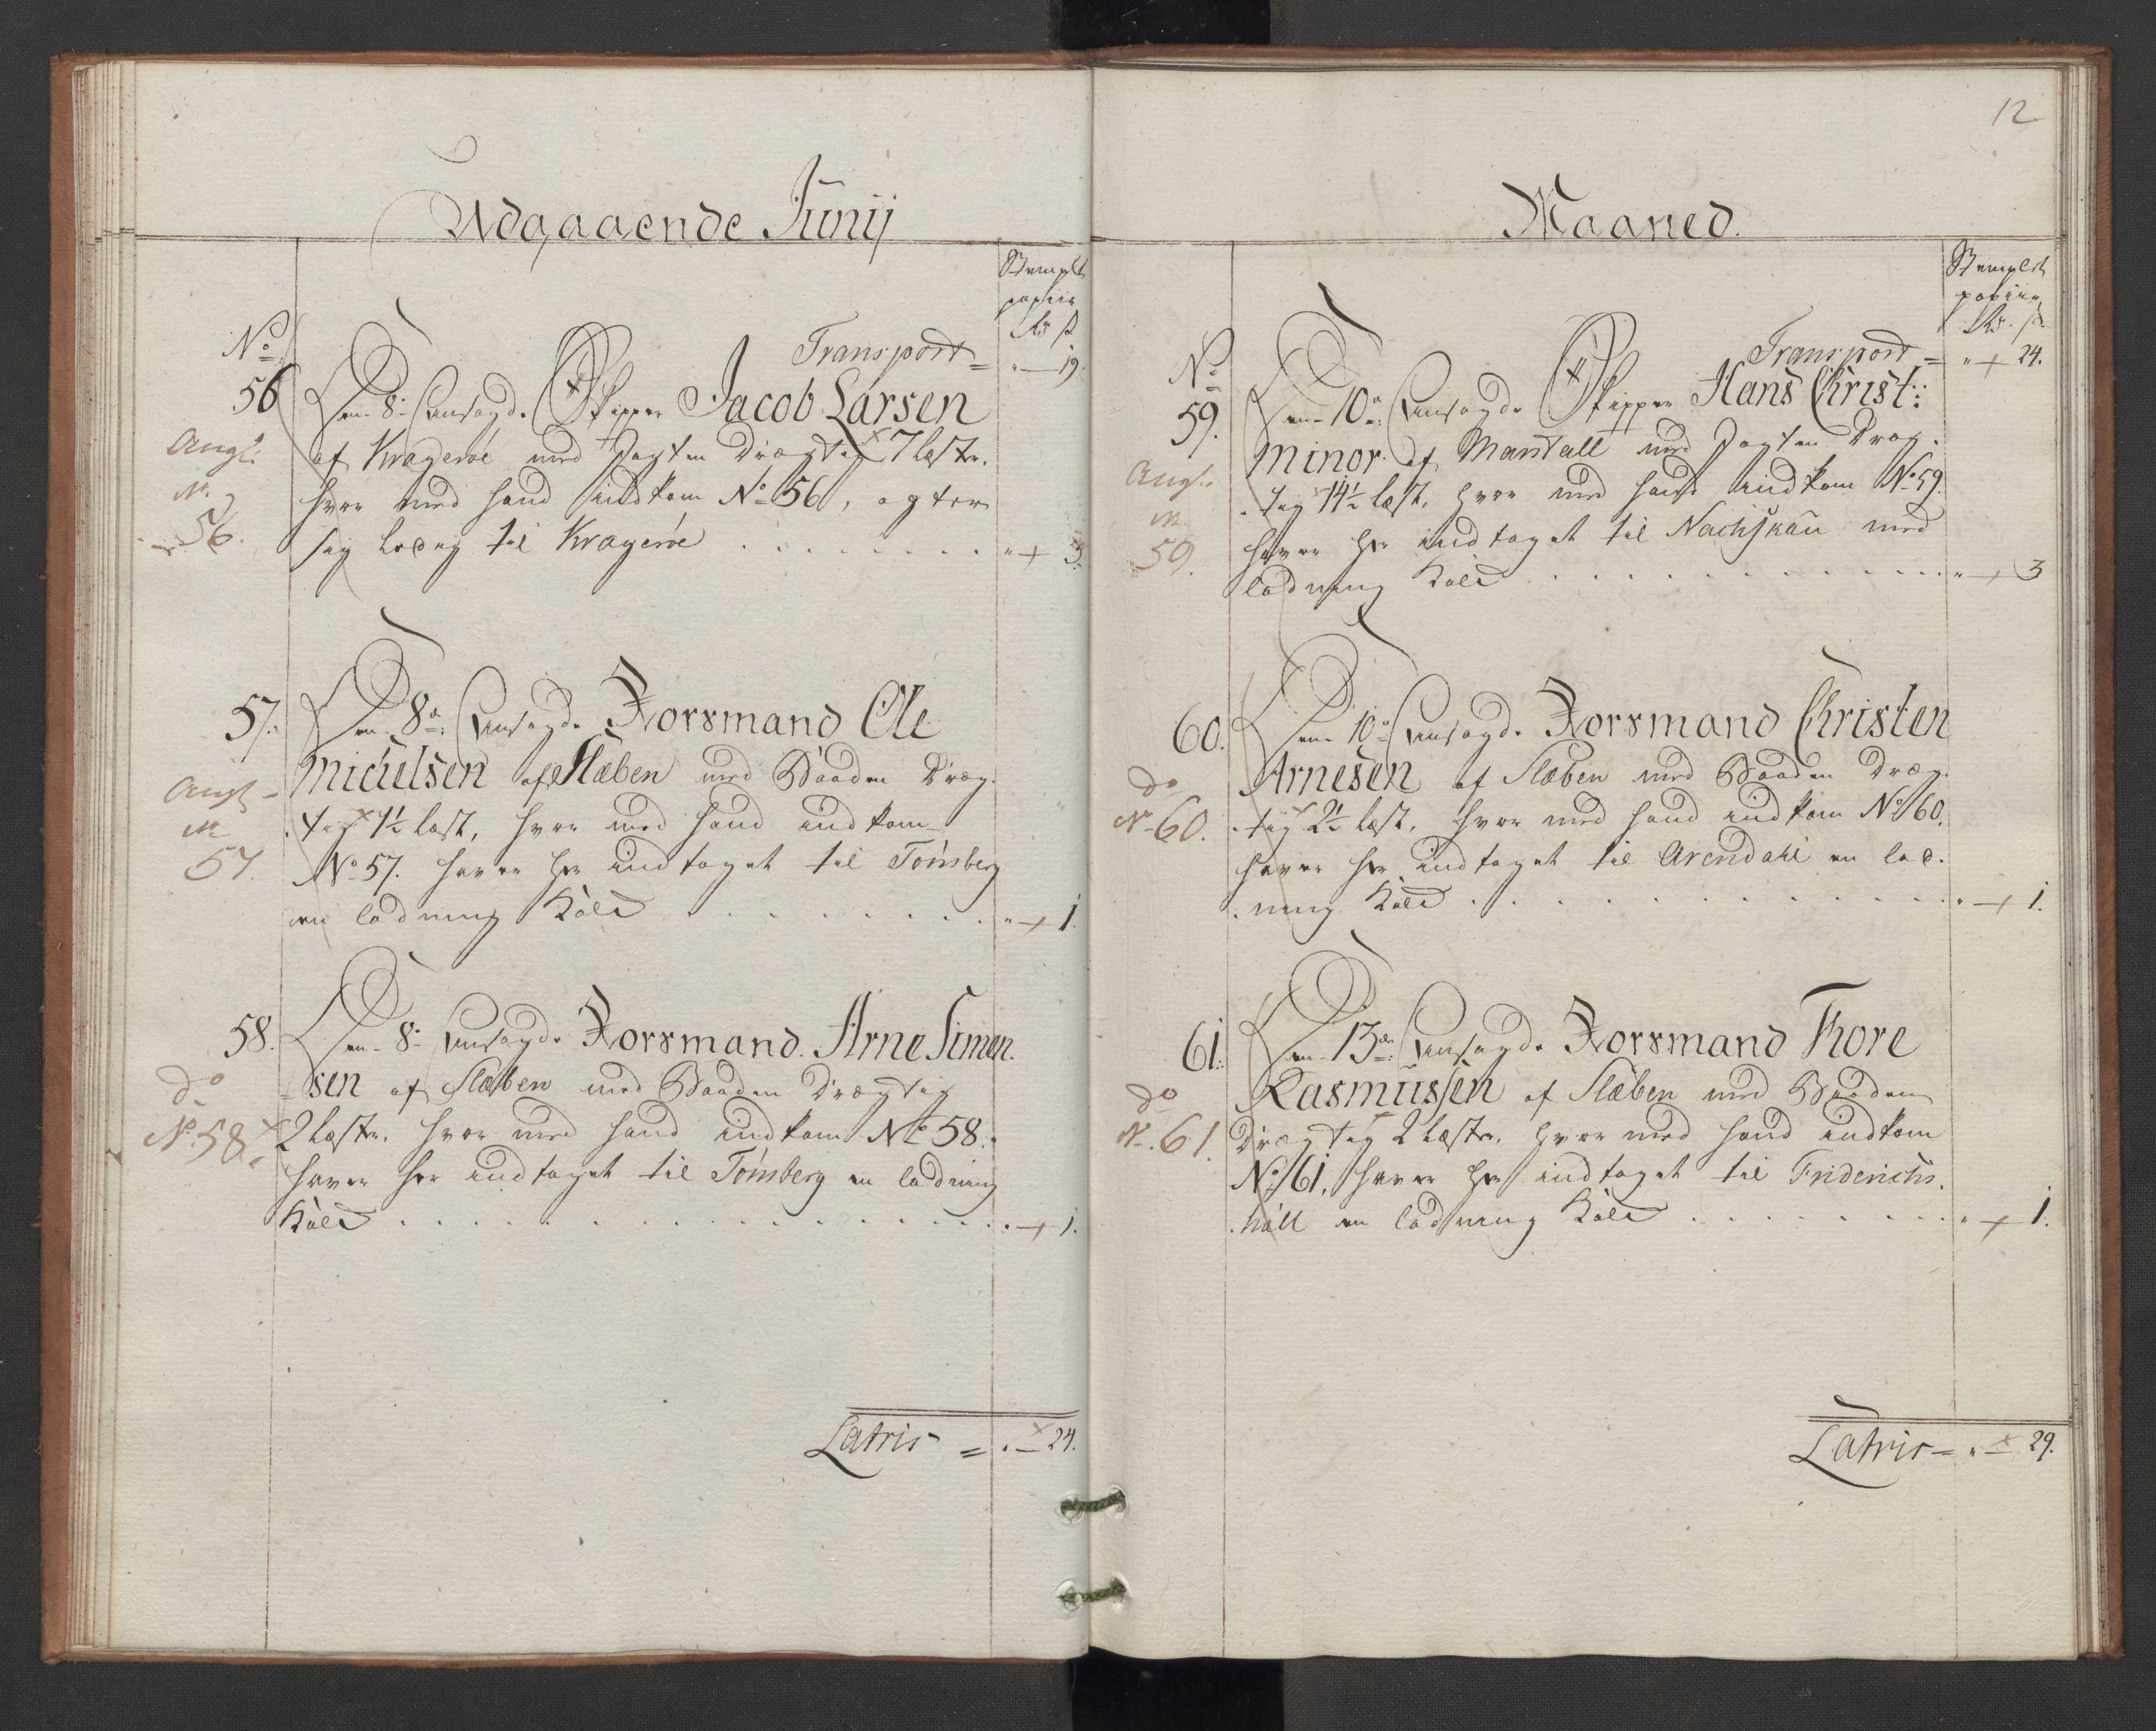 Udgaaende Junij
Stemplet
papiir
Rd ß
Transport = " — 19.
No
56 Den 8de Ansagde Skipper Jacob Larsen
af Kragerøe med Jagten Drægtig 7 læster.
hvor med hand indkom No 56, agter
sig ledig til Kragerøe . . . . . . . . " — 3.
Angl:
No
56.
57. Den 8de Ansagde Forsmand Ole
Michelsen af Slæben med Baaden Dræg-
tig 1½ læst, hvor med hand indkom
No 57. haver her indtaget til Tønsberg
en ladning Kald . . . . . . . . " — 1.
Angl
No
57.
58. Den 8de Ansagde Forsmand Arne Simen-
sen af Slæben med Baaden Drægtig
2 læster, hvor med hand indkom No 58.
haver her indtaget til Tønsberg en ladning
Kald . . . . . . . . . . . . . — 1.
do
No 58.
Latris = " — 24.
12
Maaned.
Stemplet
papiir
Rd. ß.
Transport = " — 24.
No
59. Den 10de Ansagde Skipper Hans Christ:
Minor af Marstall med Jagten Dræg-
tig 14½ læst, hvor med hand indkom No 59.
haver her indtaget til Nachskau med
ladning Kald . . . . . . . . . . . " — 3
Angl.
No
59.
60. Den 10de Ansagde Forsmand Christen
Arnesen af Slæben med Baaden Dræg-
tig 2½ læst, hvor med hand indkom No 60.
haver her indtaget til Arendahl en lad-
ning Kald . . . . . . . . . . . . " — 1.
do
No 60.
61. Den 13de Ansagde Forsmand Thore
Rasmussen af Slæben med Baaden
Drægtig 2 læster, hvor med hand indkom
No 61. haver her indtaget til Friderichs-
hall en ladning Kald . . . . . . . . " — 1.
do
No. 61.
Latris = " — 29.